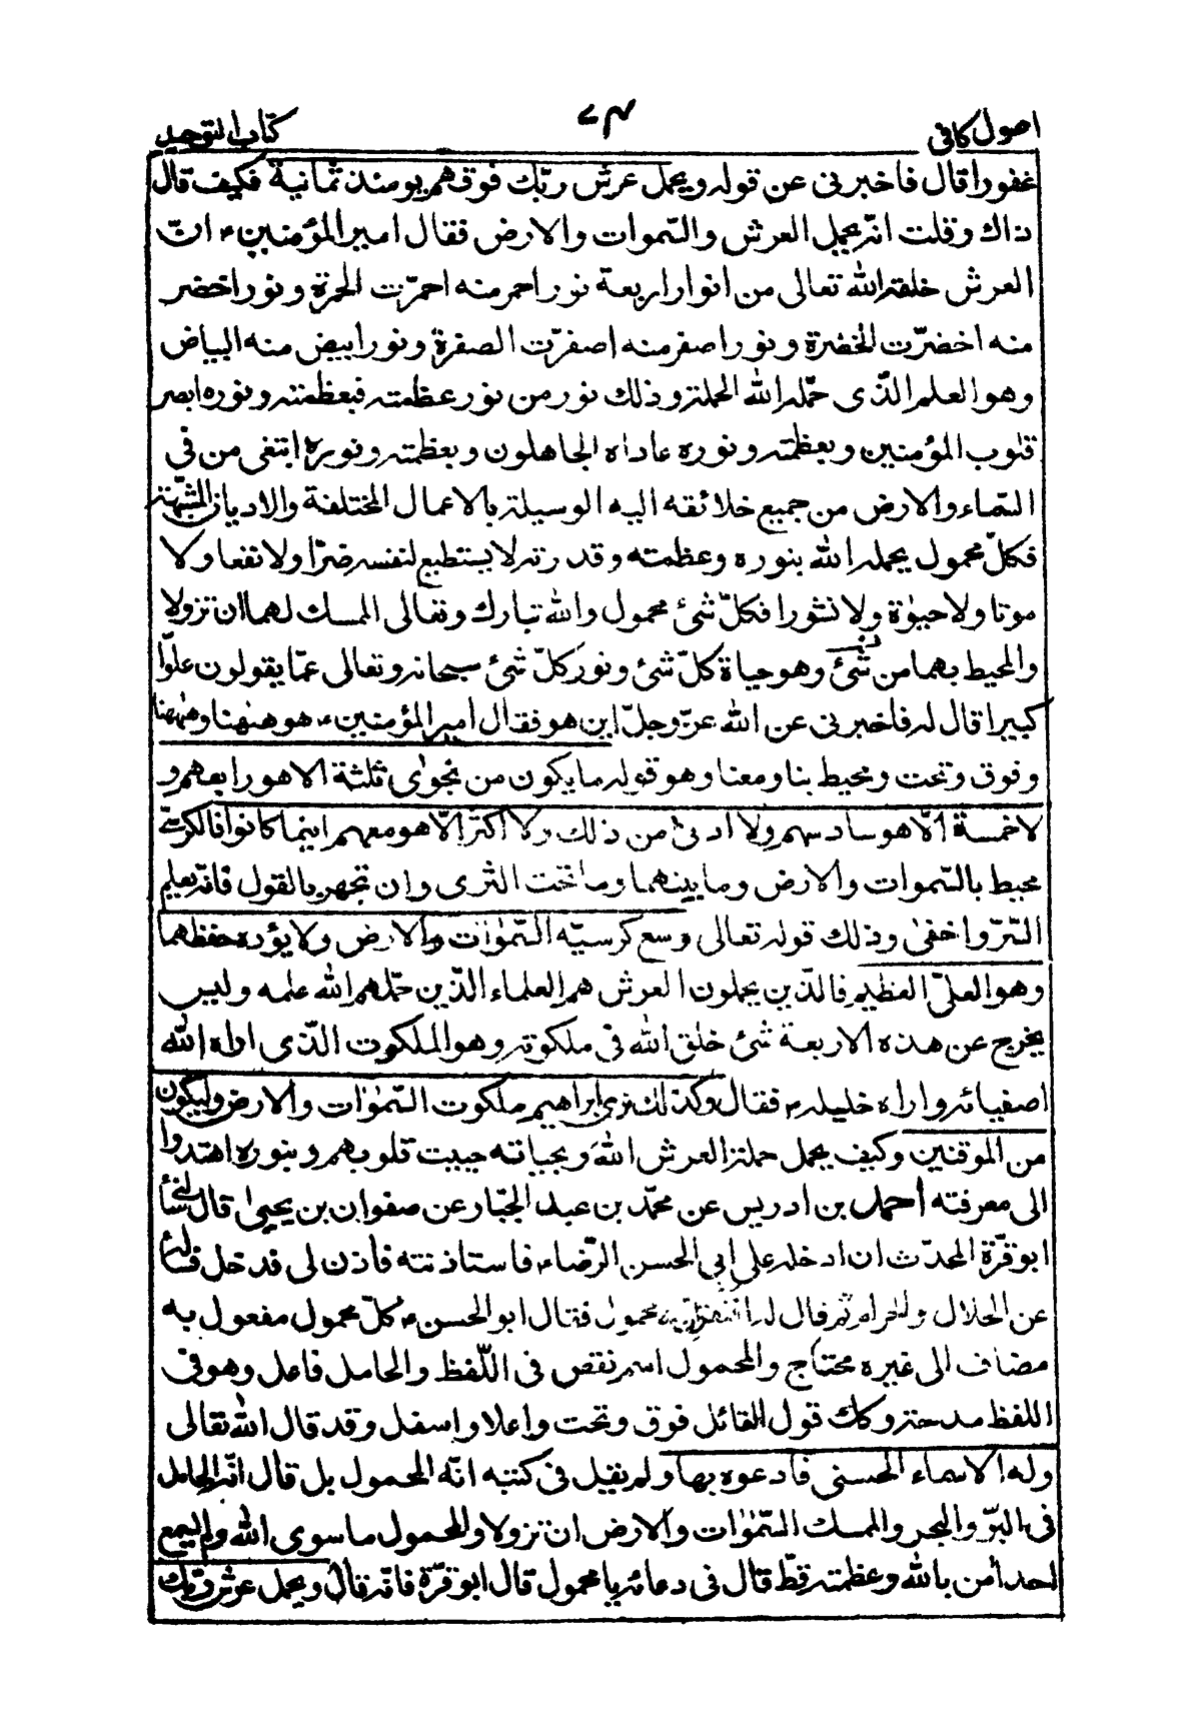 اصول كافى ٧٤ كتاب التوحيد
غفورا قال فاخبرنى عن قوله ويحمل عرش ربّك فوقهم يومئذ ثمانية فكيف قال
ذاك وقلت انّه يحمل العرش والسّموات والارض فقال امير المؤمنين ء انّ
العرش خلقه الله تعالى من انوار اربعة نور احمر منه احمرّت الحمرة ونور اخضر
منه اخضرّت الخضرة ونور اصفر منه اصفرّت الصفرة ونور ابيض منه البياض
وهو العلم الّذى حمّله الله الحملة وذلك نور من نور عظمته فبعظمته ونوره ابصر
قلوب المؤمنين وبعظمته ونوره عاداه الجاهلون وبعظمته ونوره ابتغى من فى
السّماء والارض من جميع خلائقه اليه الوسيلة بالاعمال المختلفة والاديان المشبّهة
فكلّ محمول يحمله الله بنوره وعظمته وقدرته لا يستطيع لنفسه ضرّا ولا نفعا ولا
موتا ولا حيوٰة ولا نشورا فكلّ شئ محمول والله تبارك وتعالى الممسك لهما ان تزولا
والمحيط بهما من شئ وهو حياة كلّ شئ ونور كلّ شئ سبحانه وتعالى عمّا يقولون علوّا
كبيرا قال له فاخبرنى عن الله عزّ وجلّ اين هو فقال امير المؤمنين ء هو هٰهنا وهٰهنا
وفوق وتحت ومحيط بنا ومعنا وهو قوله ما يكون من نجوٰى ثلثة الا هو رابعهم و
لا خمسة الّا هو سادسهم ولا ادنىٰ من ذلك ولا اكثر الّا هو معهم اينما كانوا فالكرسىّ
محيط بالسّموات والارض وما بينهما وما تحت الثرى وان تجهر بالقول فانّه يعلم
السّرّ واخفىٰ وذلك قوله تعالى وسع كرسيّه السّمٰوٰات والارض ولا يؤده حفظهما
وهو العلىّ العظيم فالّذين يحملون العرش هم العلماء الّذين حمّلهم الله علمه وليس
يخرج عن هذه الاربعة شئ خلق الله فى ملكوته وهو الملكوت الّذى اراه الله
اصفيائه واراه خليله ء فقال وكذلك نرى ابراهيم ملكوت السّمٰوٰات والارض وليكون
من الموقنين وكيف يحمل حملة العرش الله وبحياته حييت قلوبهم وبنوره اهتدوا
الى معرفته احمد بن ادريس عن محمّد بن عبد الجبّار عن صفوان بن يحيىٰ قال سألنى
ابو قرّة المحدّث ان ادخله على ابى الحسن الرّضا ء فاستاذنته فاذن لى فدخل فسأله
عن الحلال والحرام ثم قال له محمول فقال ابو الحسن ء كلّ محمول مفعول به
مضاف الى غيره محتاج والمحمول اسم نقص فى اللّفظ والحامل فاعل وهو فى
اللفظ مدحة وكك قول القائل فوق وتحت واعلا واسفل وقد قال الله تعالى
وله الاسماء الحسنى فادعوه بها ولم يقل فى كتبه انّه المحمول بل قال انّه الحامل
فى البرّ والبحر والممسك السّمٰوٰات والارض ان تزولا والمحمول ما سوى الله ولم يسمع
احد أمن بالله وعظمته قطّ قال فى دعائه يا محمول قال ابو قرّة فانّه قال ويحمل عرش ربّك